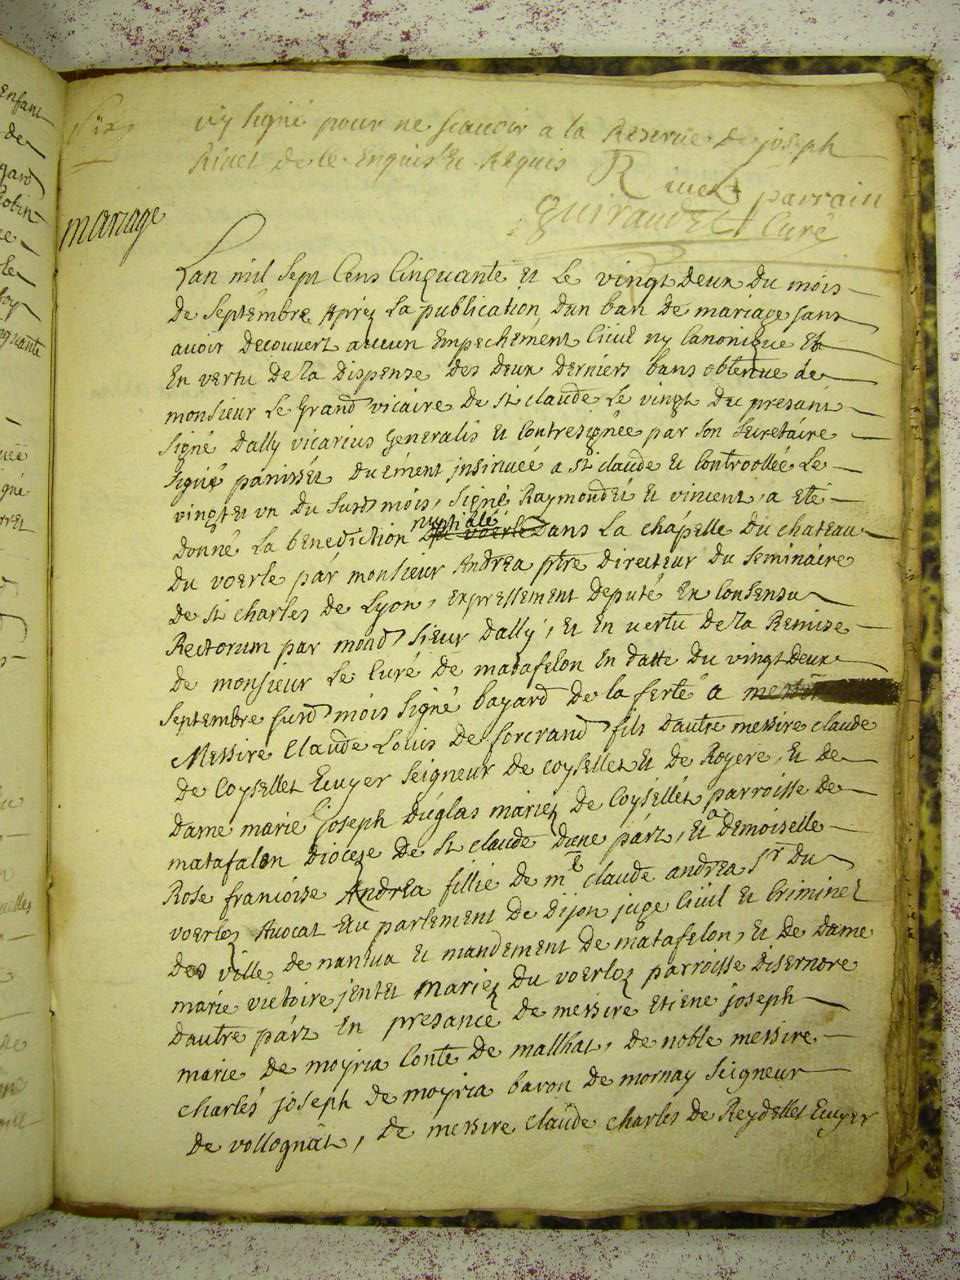 ny signé pour ne scavoir a la Reserve de joseph
Rivet de ce Enquis et Requis
Rivet parrain
Guiraudet Curé
mariage
Lan mil sept Cens Cinquante et Le vingt deux du mois
de septembre Aprez La publication d'un ban de mariage sans
avoir decouvert aucun Empechement Civil ny Canonique Et
En vertu de la Dispense des deux derniers bans obtenue de
monsieur Le Grand vicaire de st claude Le vingt du presant
signé Dally vicarius Generalis et Contresignée par son secretaire
signé panisset duëment insinuée a st claude et Controollée Le
vingt et un du susd mois, signé Raymondet et vincent, a eté
donné La benediction nuptiale Dans La chapelle du chateau
du voerle par monsieur Andrea ptre directeur du seminaire
de st charles de Lyon, expressement deputé En Consensu
Rectorum par mond sieur Dally, et En vertu de la Remise
de monsieur Le Curé de matafelon En datte du vingt deux
septembre susd mois signé bayard de la ferté a
Messire Claude Louis de forcrand fils d'autre messire claude
de Coysellet Ecuyer seigneur de coysellet et de Royere, et de
Dame marie joseph Duglas mariez de Coysellet parroisse de
matafalon Diocese de st claude d'une part, et a Demoiselle
Rose francoise Andrea fillie de me claude andrea sr du
voerloz Avocat Au parlement de Dijon juge Civil et Criminel
des ville de nantua et mandement de matafelon, et de Dame
marie victoire jentet mariez du voerloz parroisse disernore
d'autre part En presance de messire Etiene joseph
marie de moyria Conte de maillat, de noble messire
charles joseph de moyria baron de mornay seigneur
de vollognat, de messire claude charles de Reydellet Ecuyer